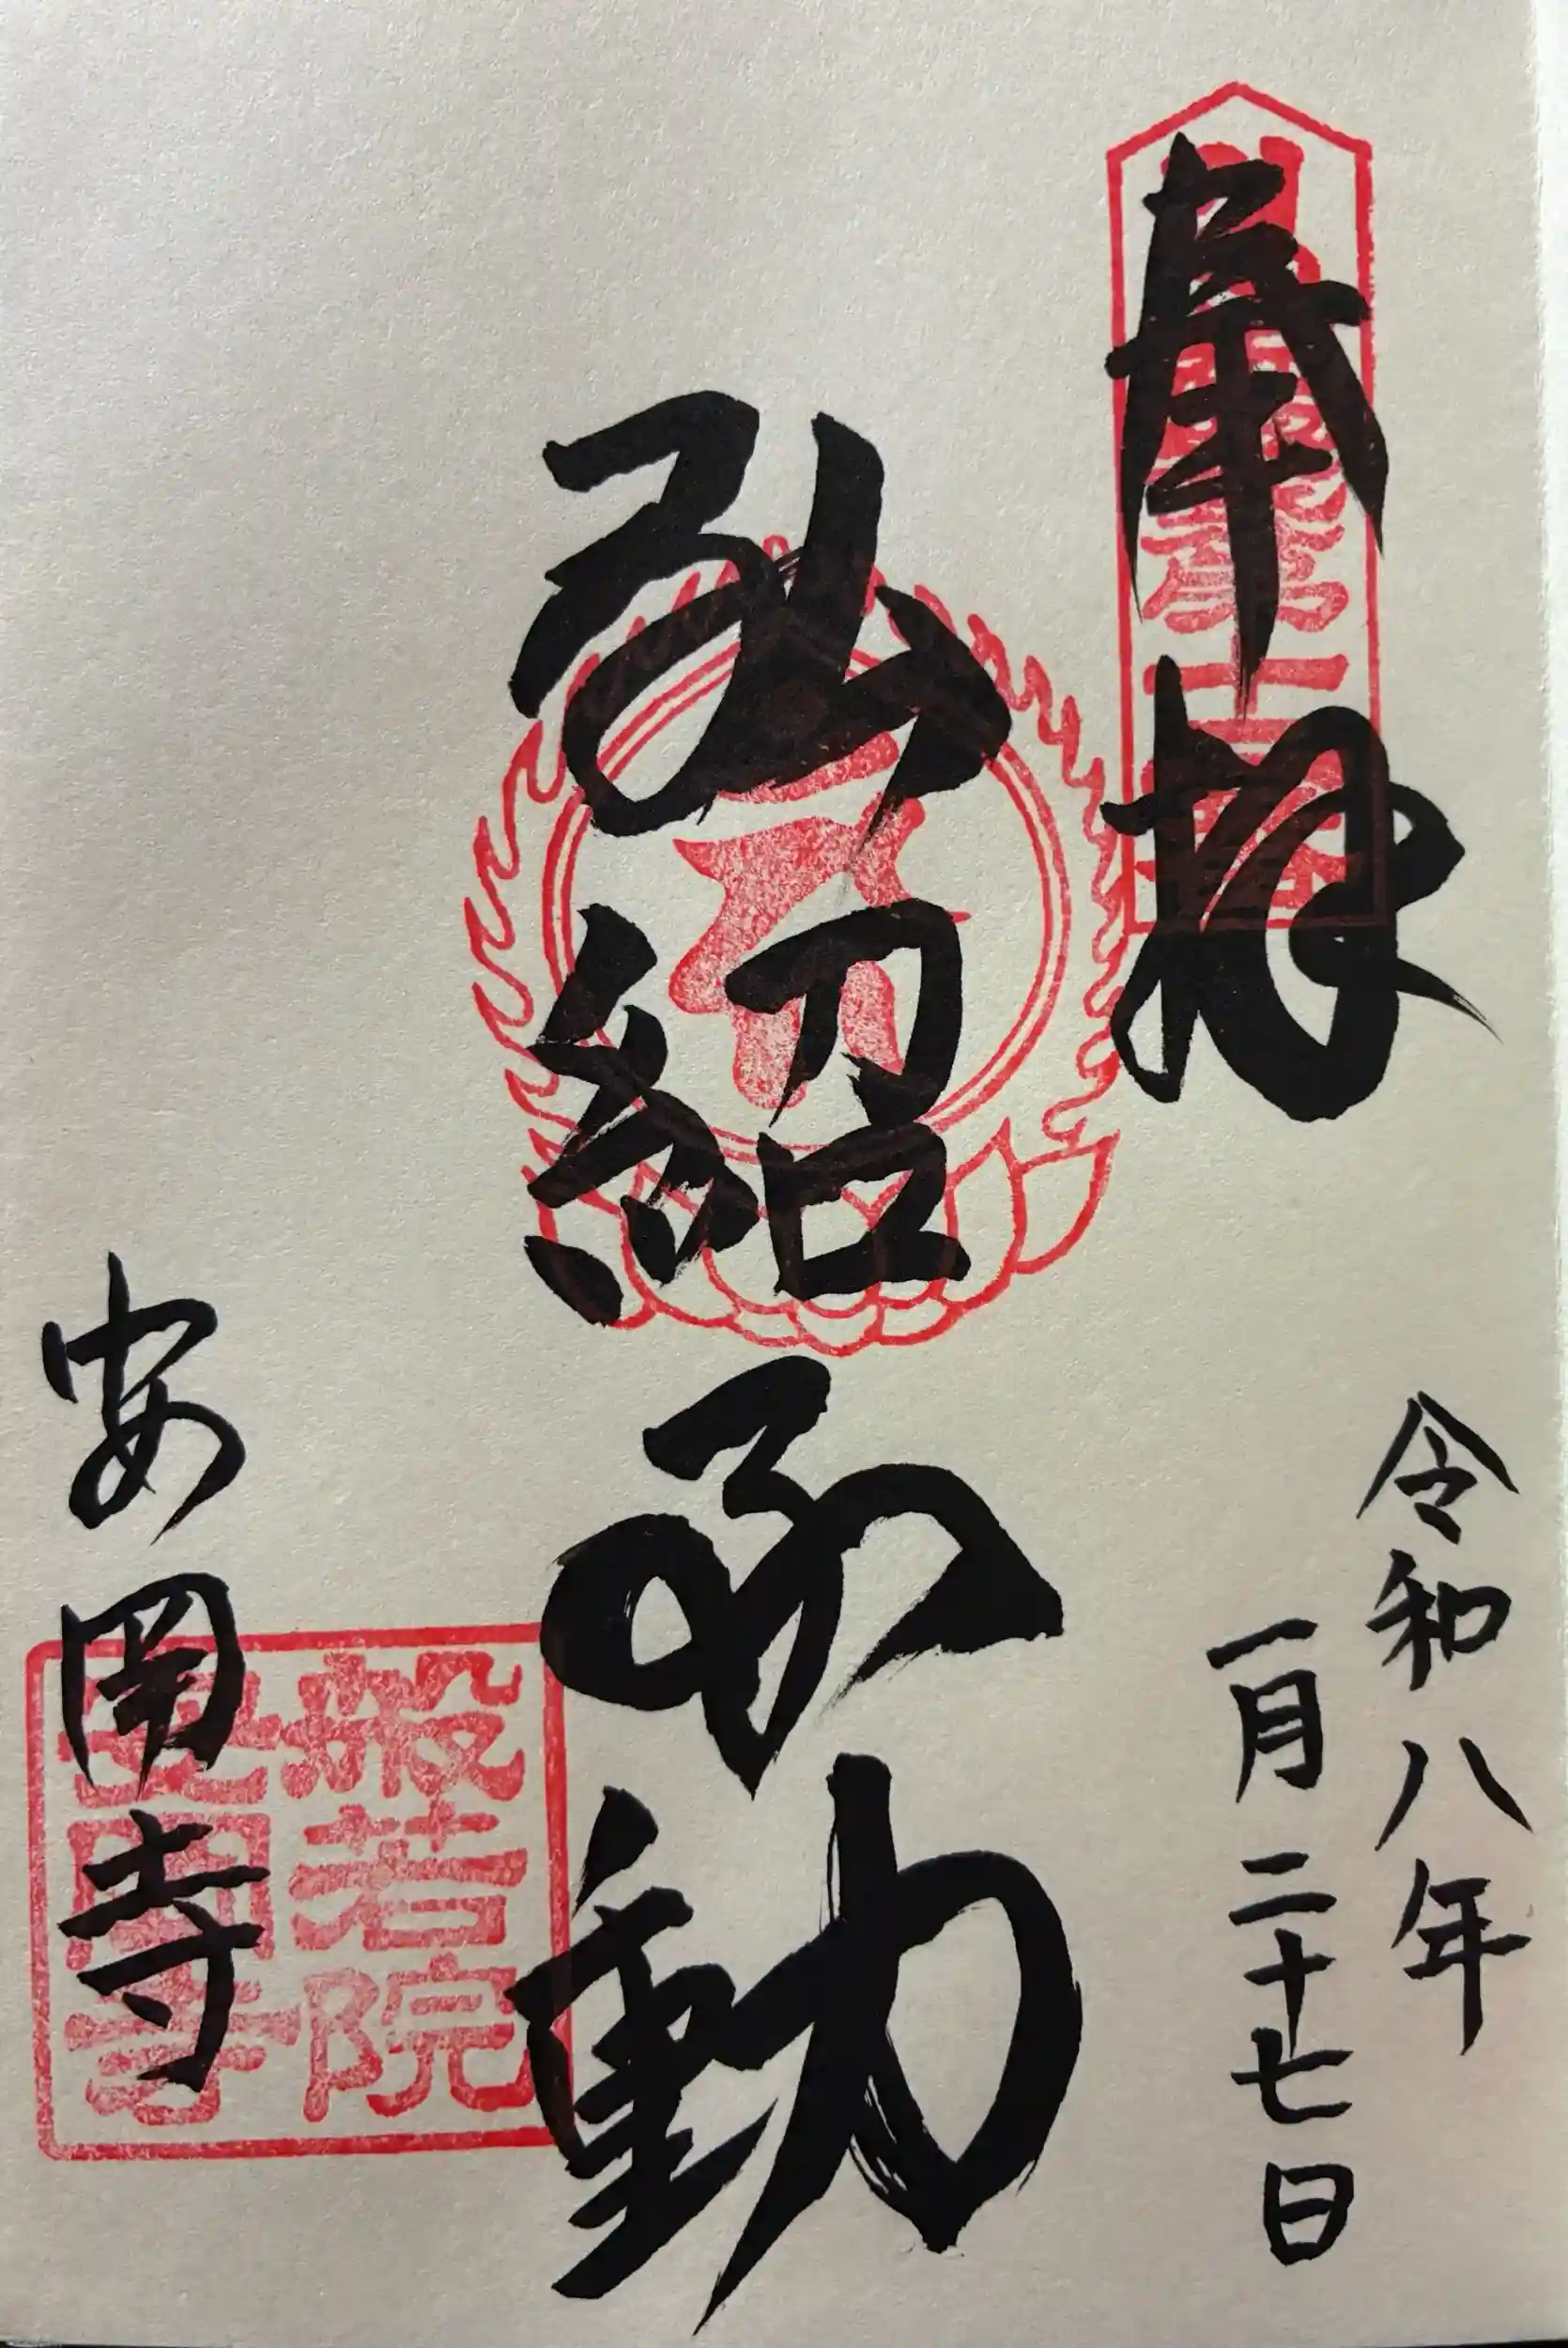 奉拝
令和八年
一月二十七日
弘紹不動
安岡寺
般若院
安岡寺